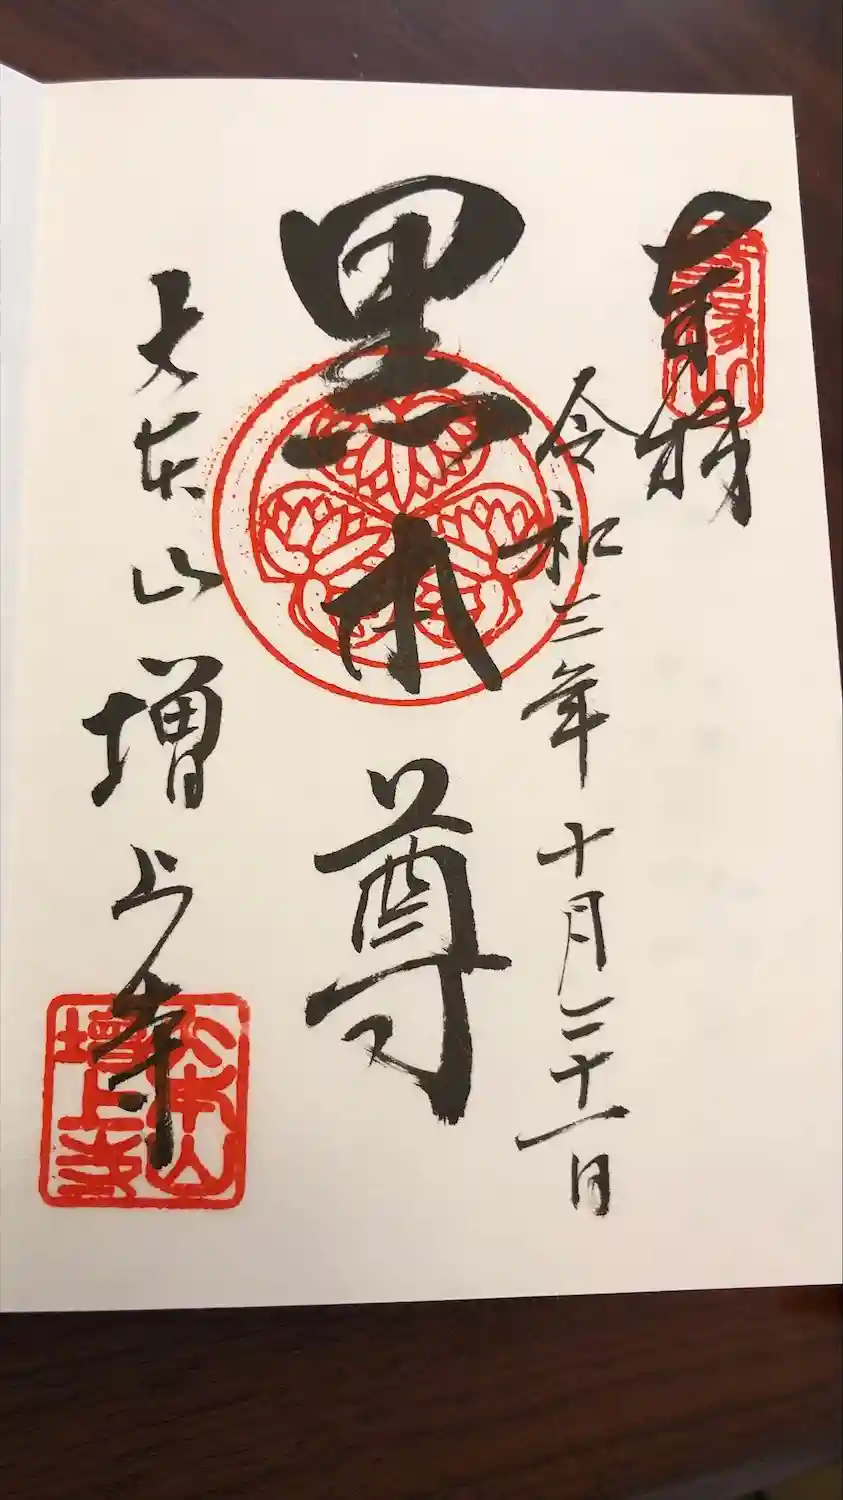 奉拝
令和三年十月二十一日
黒本尊
大本山増上寺
大本山
増上寺